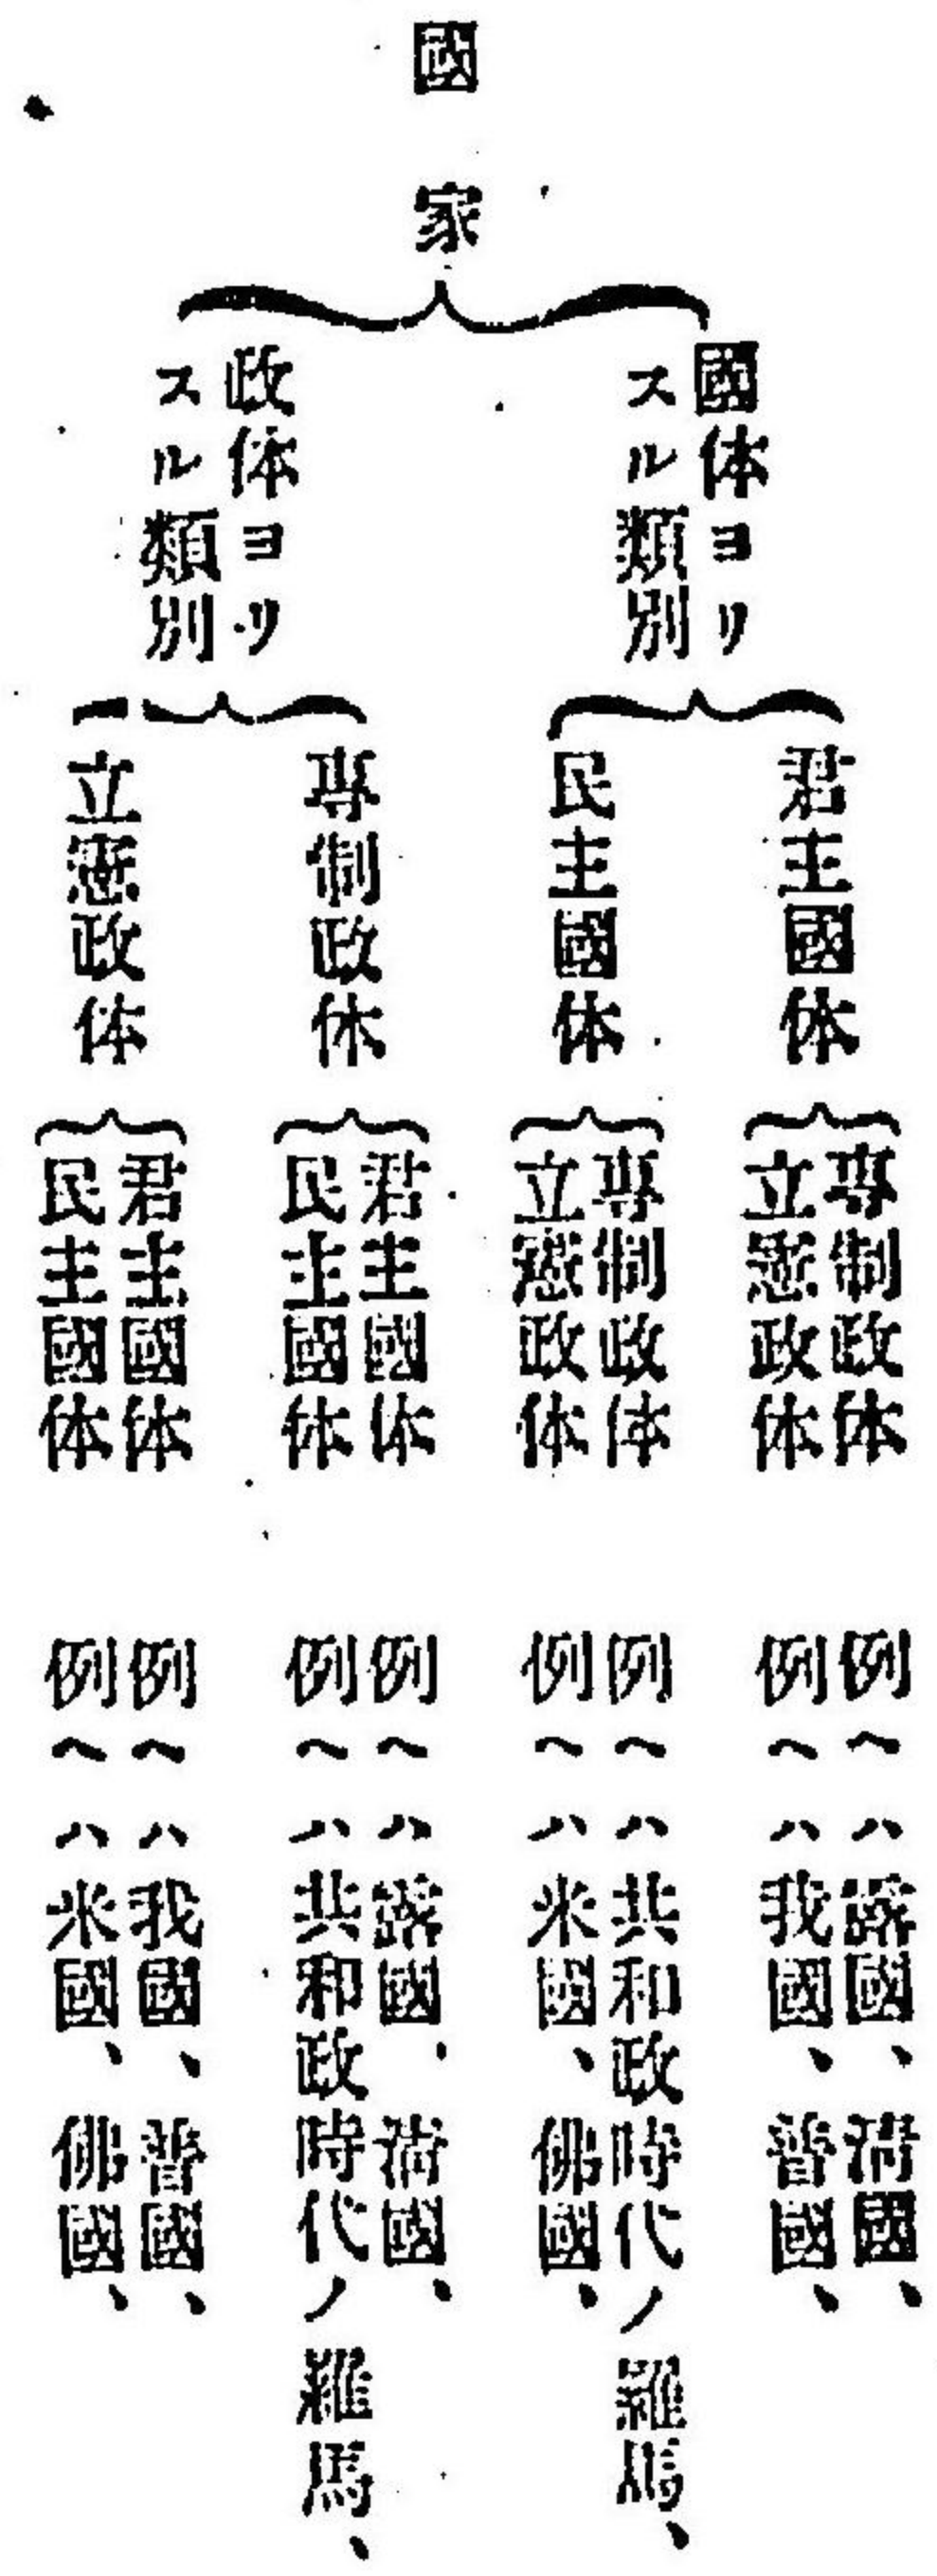 國家
國体ヨリ
スル類別
君主國体
専制政体
例ヘハ露國、淸國、
立憲政体
例ヘハ我國、普國、
民主國体
専制政体
例ヘハ共和政時代ノ羅馬、
立憲政体
例ヘハ米國、佛國、
政体ヨリ
スル類別
専制政体
君主國体
例ヘハ露國、淸國、
民主國体
例ヘハ共和政時代ノ羅馬、
立憲政体
君主國体
例ヘハ我國、普國、
民主國体
例ヘハ米國、佛國、